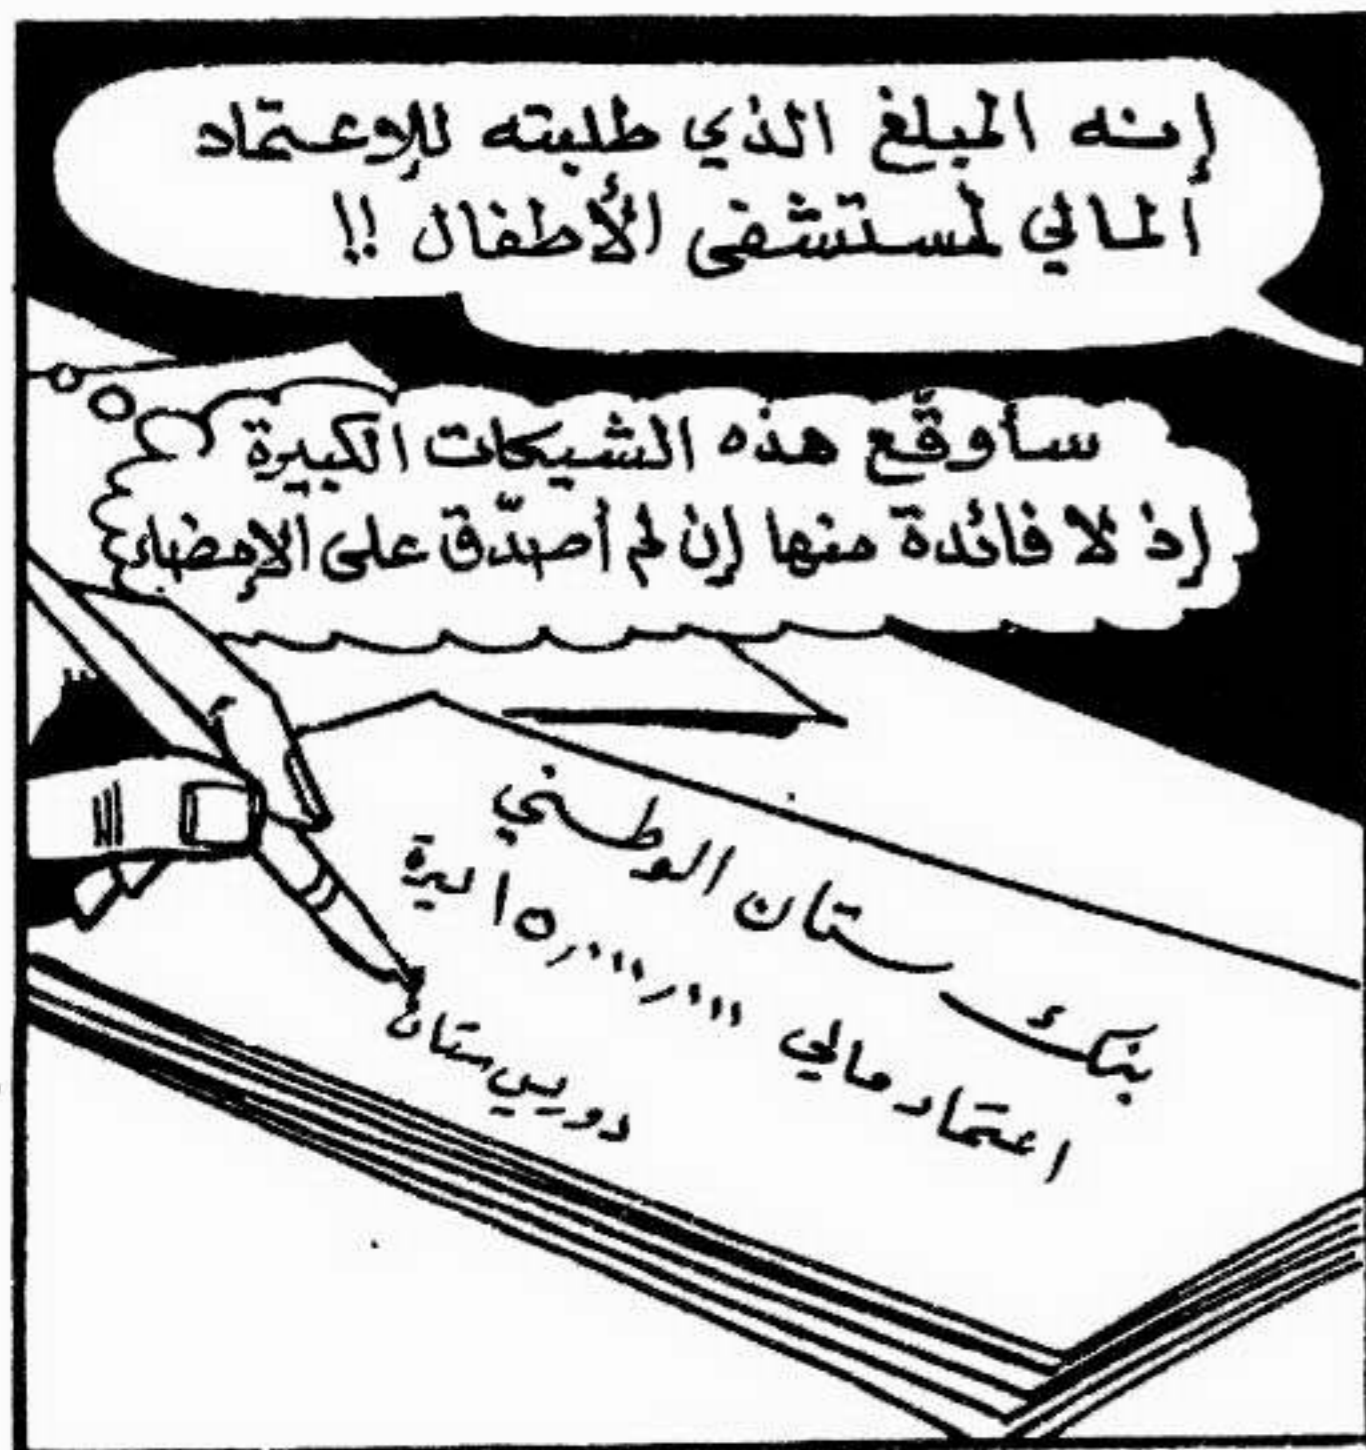 إنه المبلغ الذي طلبته للإعتماد
المالي لمستشفى الأطفال !!
سأوقّع هذه الشيكات الكبيرة
إذ لا فائدة منها إن لم أصدّق على الإمضاء
بنك ستان الوطني
اعتماد مالي ١٥٫٠٠٠٫٠٠٠ ليرة
دوريس ستان